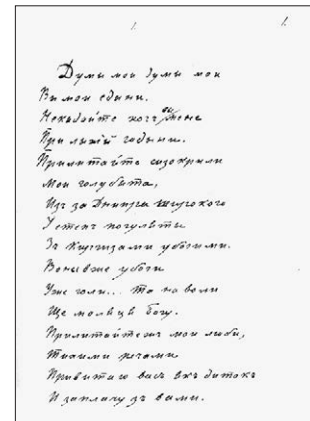 1.
1.
Думы мои думы мои
Вы мои едыни.
Некыдайте хочь вы мене
При лыхій годыни.
Прилитайте сизокрили
Мои голубята,
Изъ за Днипра широкого
У степъ погуляты
Зъ Киргизами убогими.
Воны вже убоги
Уже голи... Та на воли
Ще молятця богу.
Прилитайте жъ мои люби,
Тихими речами
Привитаю васъ якъ дитокъ
И заплачу зъ вами.